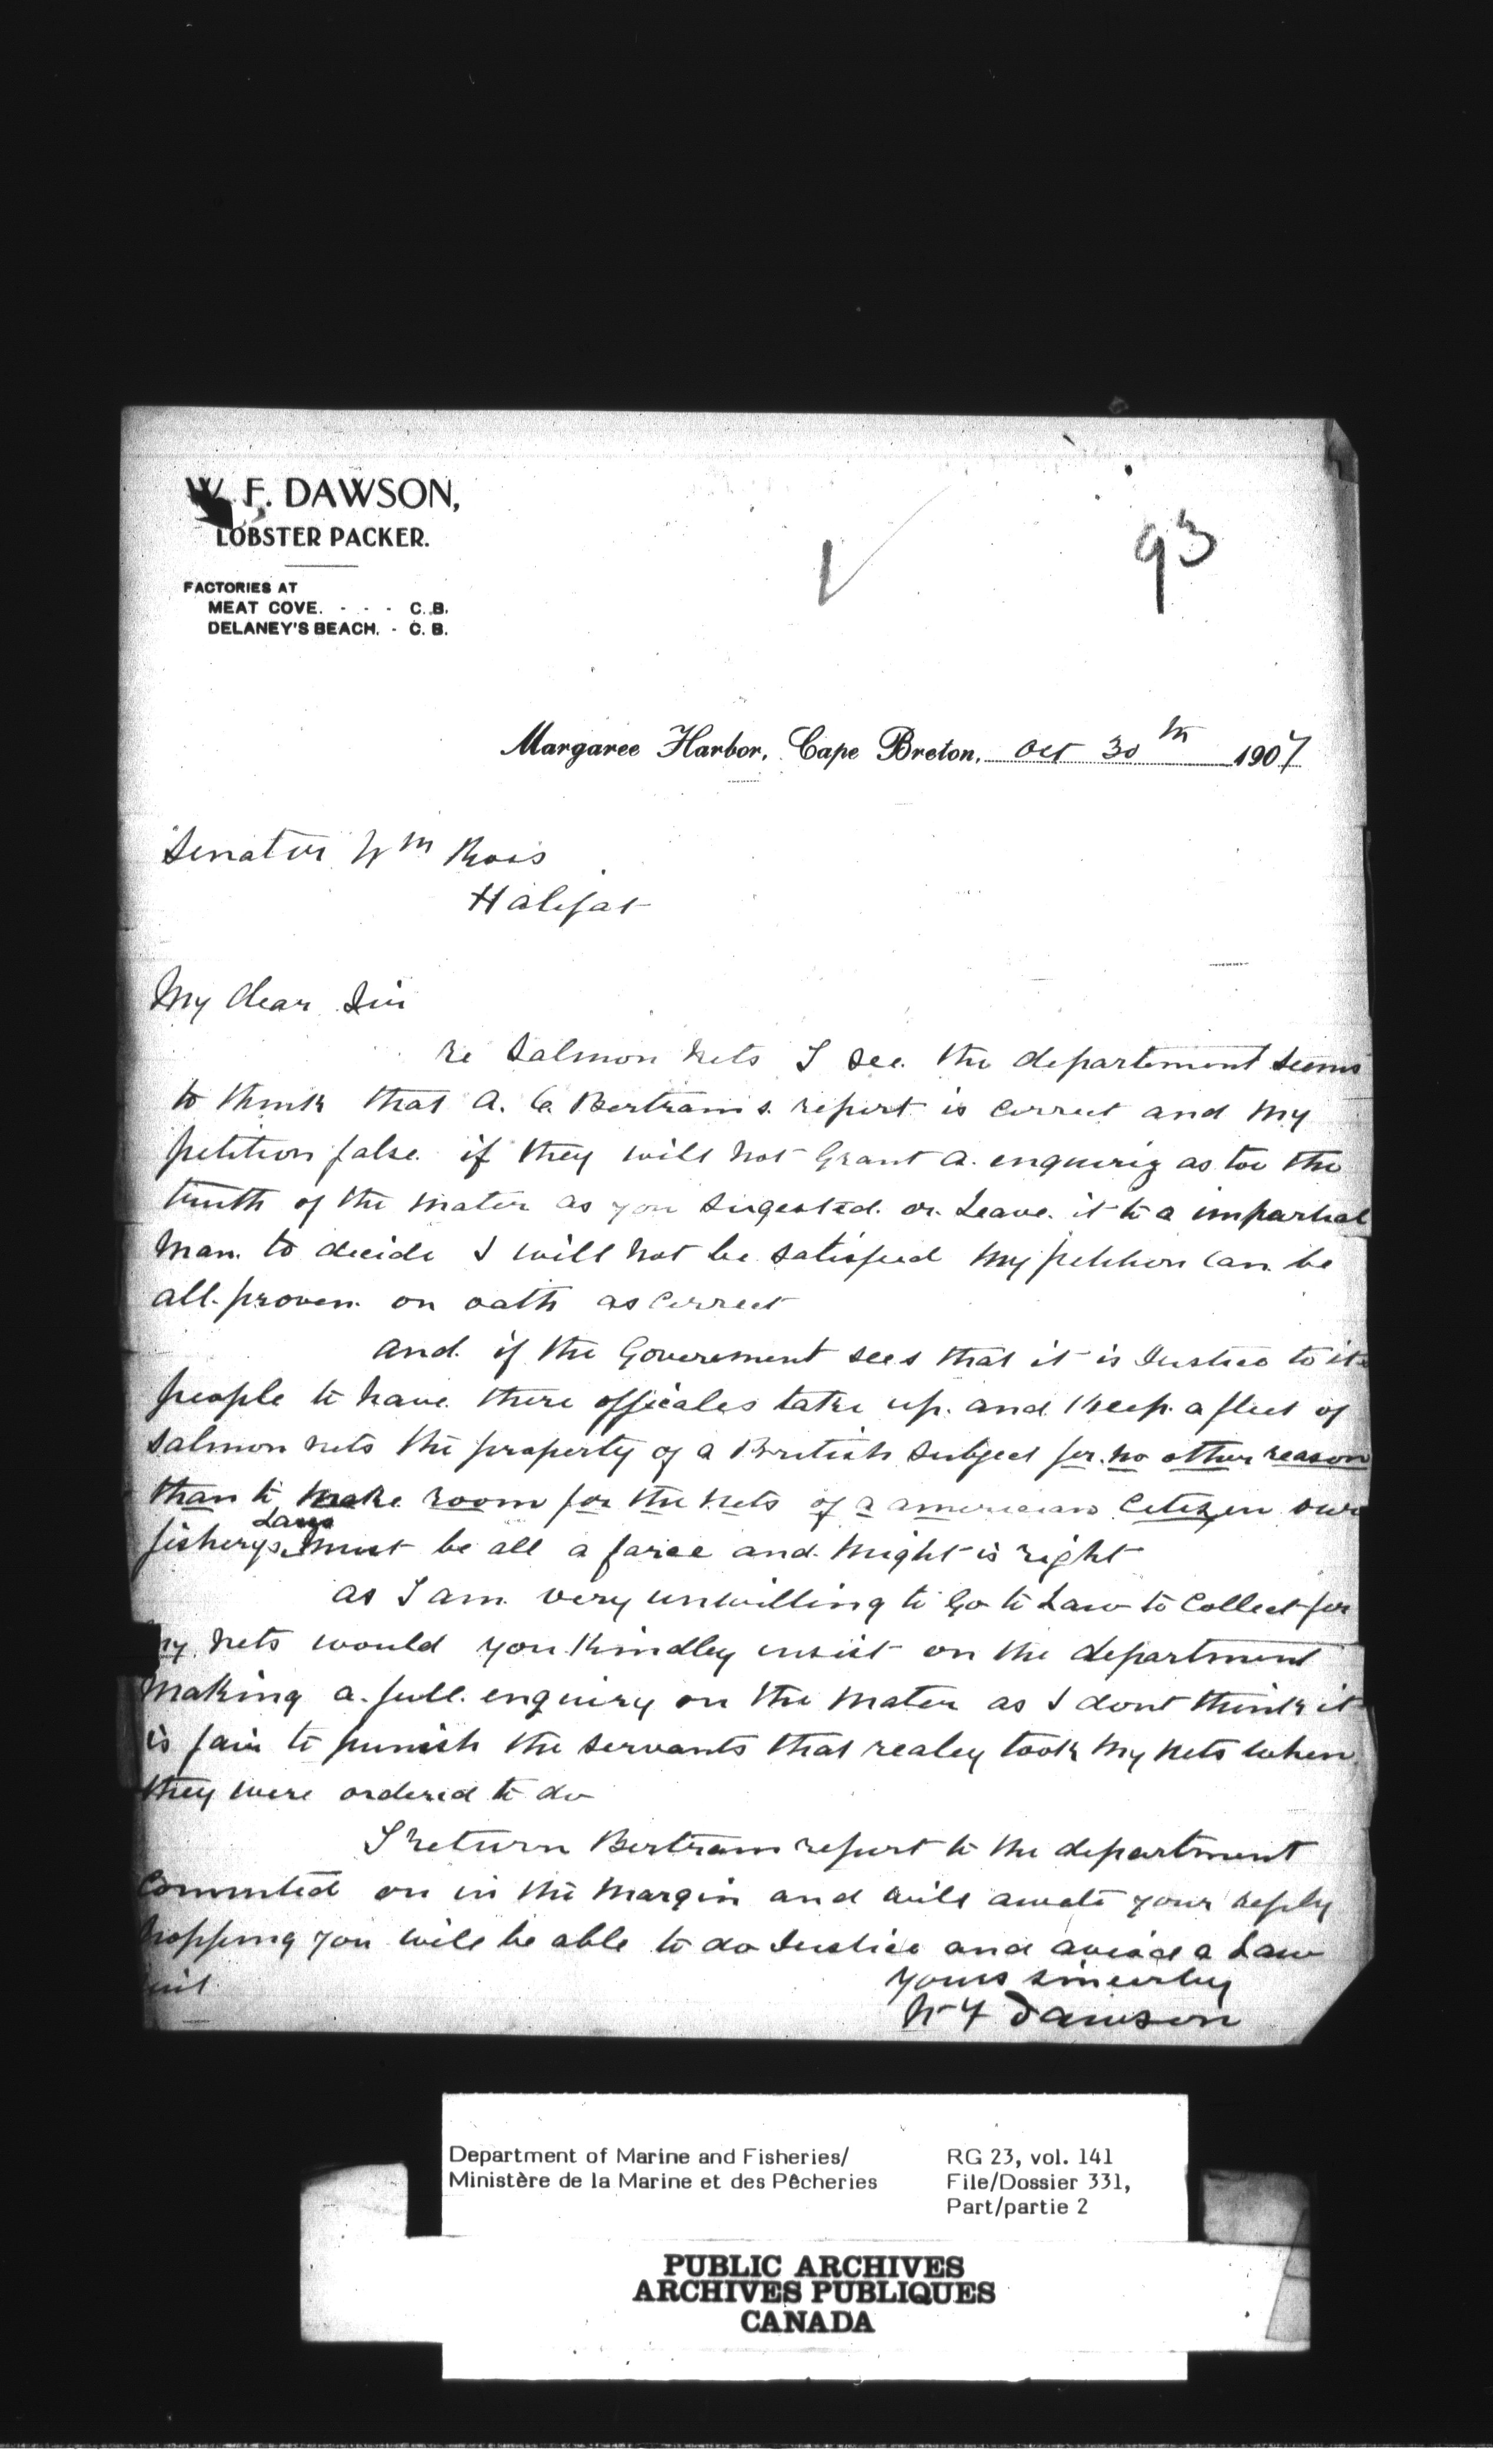 W. F. DAWSON,
LOBSTER PACKER.
FACTORIES AT
MEAT COVE. - - - C. B.
DELANEY'S BEACH. - C. B.
93
Margaree Harbor, Cape Breton, Oct 30th 1907
Senator Wm Ross
Halifax
My dear Sir
re Salmon nets I see the department seems
to think that A. C. Bertrams report is correct and my
petition false if they will not Grant a enquiriy as too the
truth of the mater as you sugested or Leave it to a impartial
man to decide I will not be satisfied my petition can be
all proven on oath as correct
And if the Goverement sees that it is Justice to its
people to have there officales take up and keep a fleet of
salmon nets the property of a British subject for no other reason
than to make room for the nets of a american citizen our
fisherys Laws must be all a farce and might is right
as I am very unwilling to Go to Law to Collect for
my nets would you kindley insist on the department
making a full enquiry on the mater as I dont think it
is fair to punish the servants that realey took my nets when
they were ordered to do
I return Bertram report to the department
Commuted on in the margin and will awate your reply
hopping you will be able to do Justice and avoid a Law
suit
Yours sincerley
W F Dawson
Department of Marine and Fisheries/
Ministère de la Marine et des Pêcheries
RG 23, vol. 141
File/Dossier 331,
Part/partie 2
PUBLIC ARCHIVES
ARCHIVES PUBLIQUES
CANADA